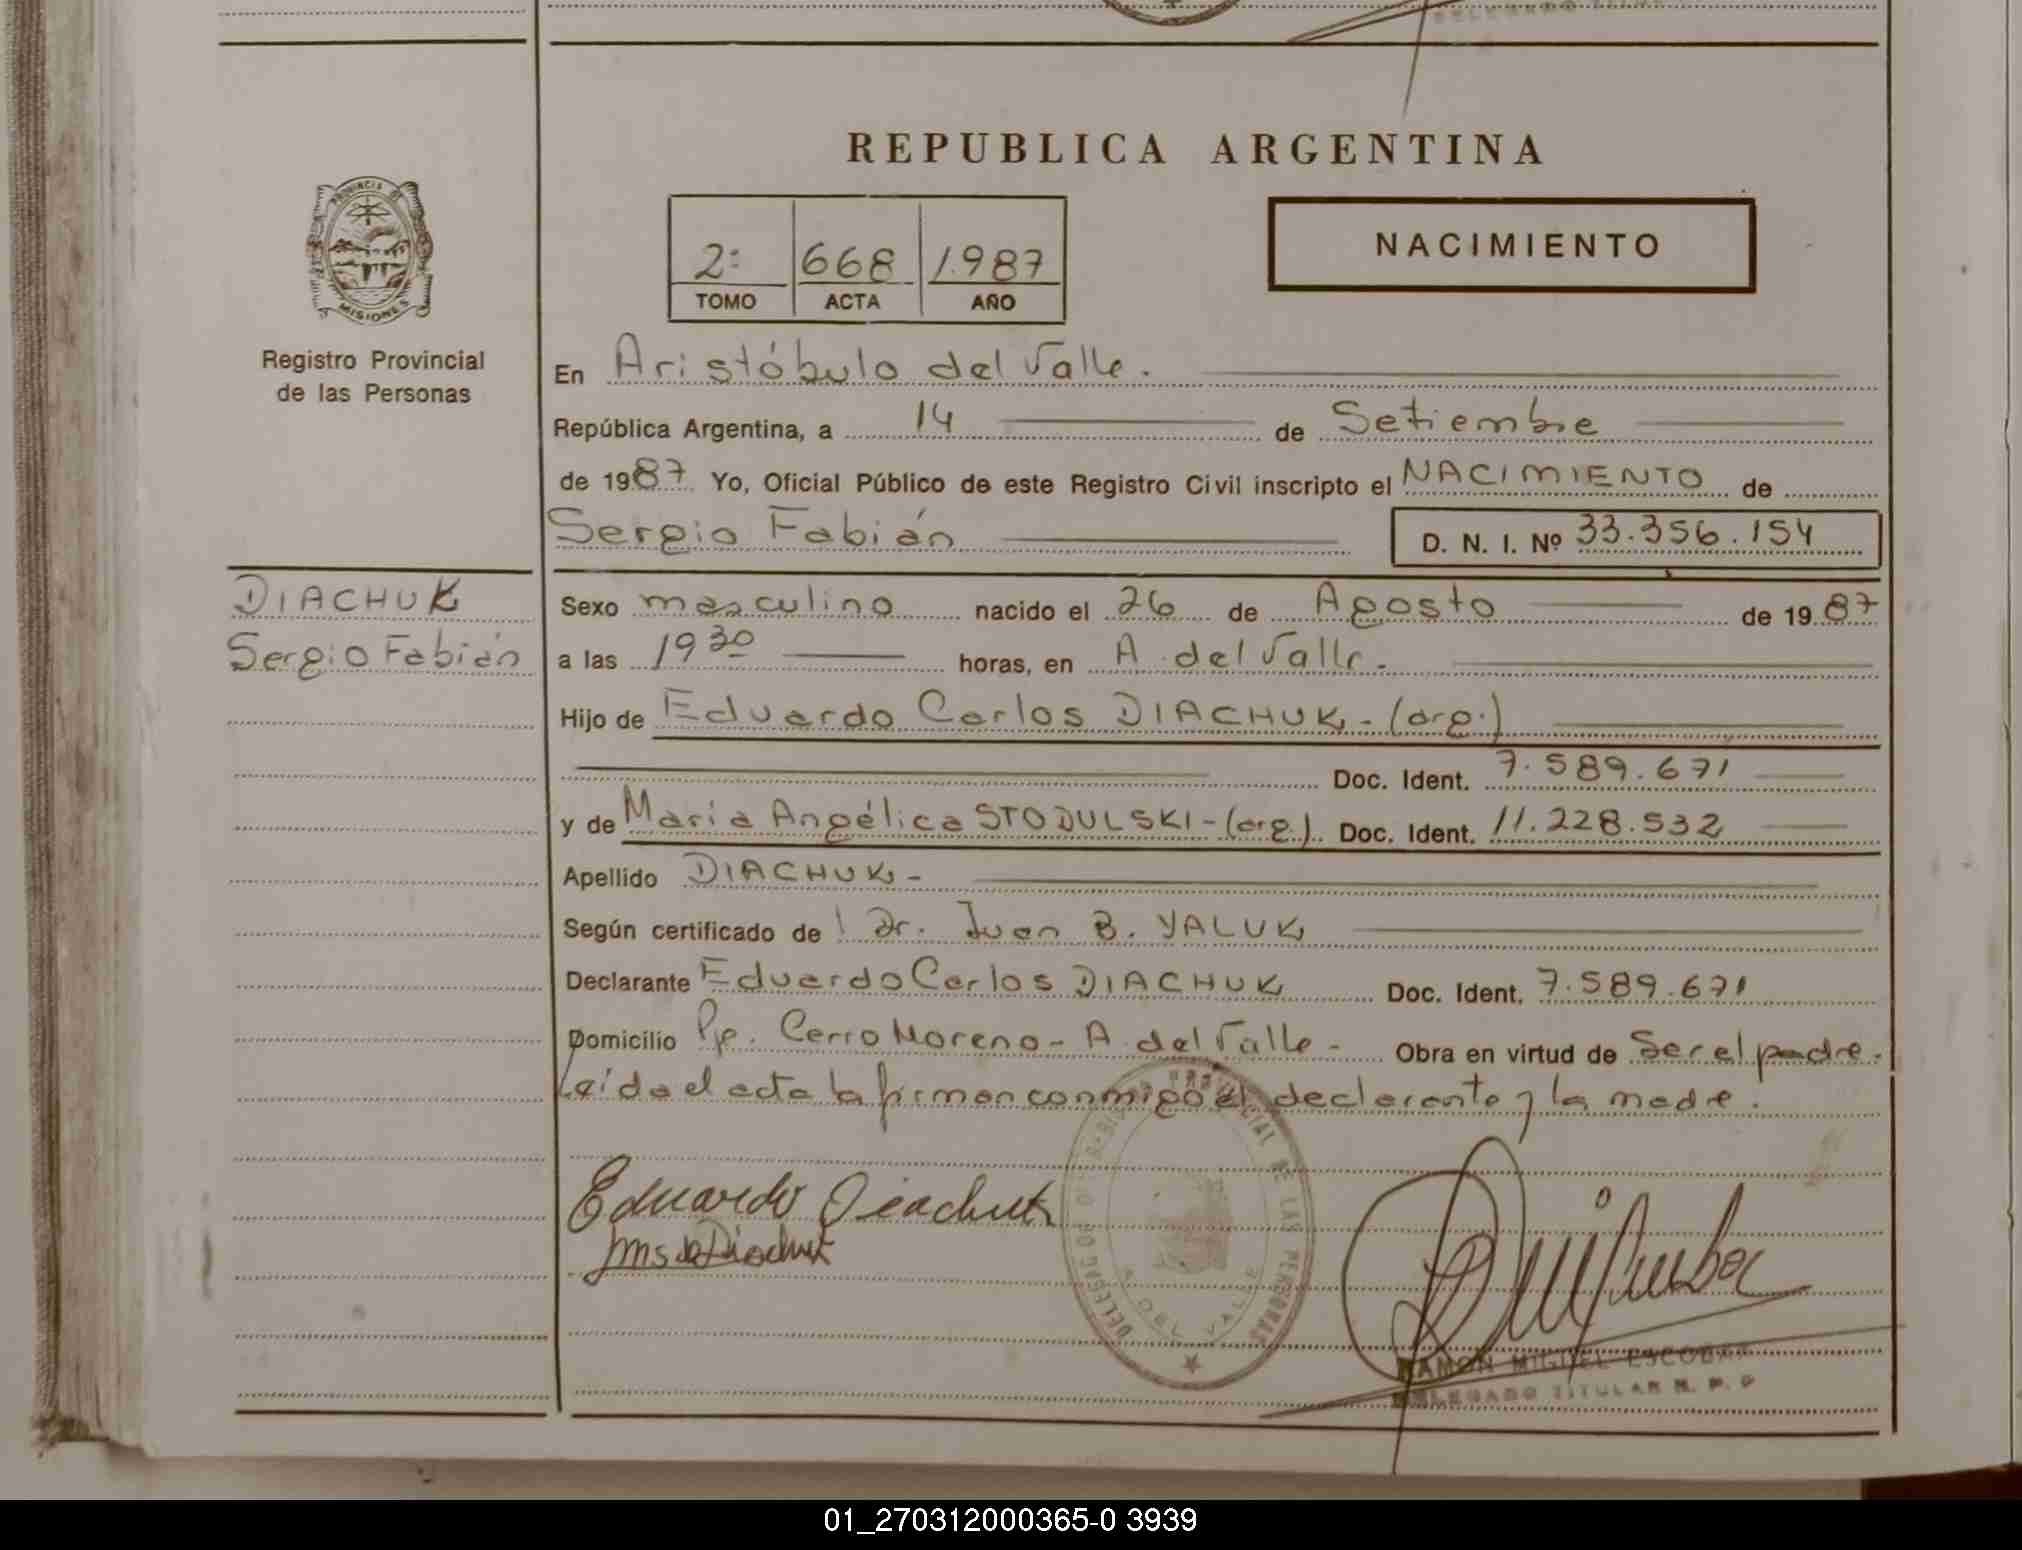 REPUBLICA ARGENTINA
PROVINCIA DE
MISIONES
Registro Provincial
de las Personas
2º 668 1.987
TOMO ACTA AÑO
NACIMIENTO
En Aristóbulo del Valle.
República Argentina, a 14 de Setiembre
de 1987 Yo, Oficial Público de este Registro Civil inscripto el NACIMIENTO de
Sergio Fabián D. N. I. Nº 33.356.154
DIACHUK
Sergio Fabián
Sexo masculino nacido el 26 de Agosto de 1987
a las 19 30 horas, en A. del Valle.
Hijo de Eduardo Carlos DIACHUK - (arg.)
Doc. Ident. 7.589.671
y de María Angélica STODULSKI - (arg.) Doc. Ident. 11.228.532
Apellido DIACHUK -
Según certificado de Dr. Juan B. YALUK
Declarante Eduardo Carlos DIACHUK Doc. Ident. 7.589.671
Domicilio Pje. Cerro Moreno - A. del Valle - Obra en virtud de Ser el padre.
Leída el acta la firman conmigo el declarante y la madre.
Eduardo Diachuk
de Diachuk
A. DEL VALLE
RAMON MIGUEL ESCOBAR
DELEGADO TITULAR R. P. P
01_270312000365-0 3939